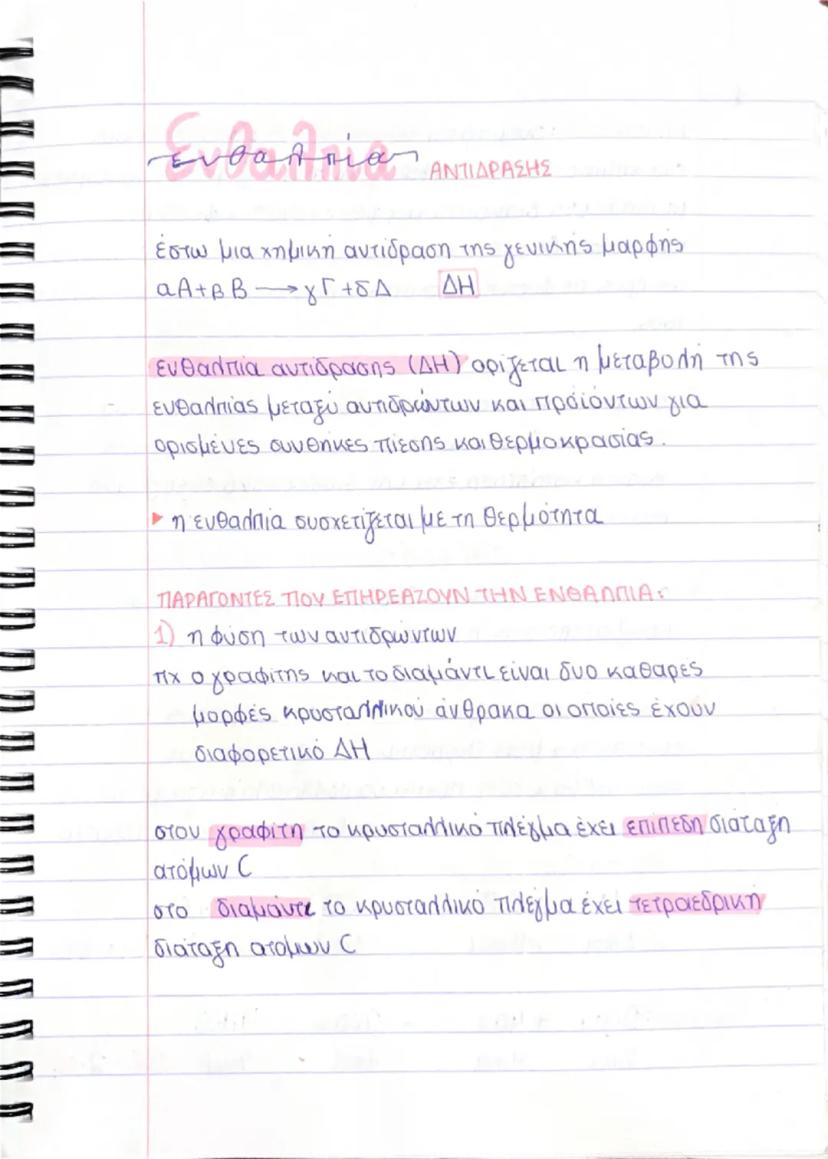 Ενθαλπία ΑΝΤΙΔΡΑΣΗΣ
έστω μια χημική αντίδραση της γενικής μορφής
αΑ+βΒ → γΓ+δΔ ΔΗ
ενθαλπία αντίδρασης (ΔΗ) ορίζεται η μεταβολή της
ενθαλπίας μεταξύ αντιδρώντων και προϊόντων για
ορισμένες συνθήκες πίεσης και θερμοκρασίας.
▸ η ενθαλπία συσχετίζεται με τη θερμότητα
ΠΑΡΑΓΟΝΤΕΣ ΠΟΥ ΕΠΗΡΕΑΖΟΥΝ ΤΗΝ ΕΝΘΑΛΠΙΑ:
1) η φύση των αντιδρώντων
πχ ο γραφίτης και το διαμάντι είναι δυο καθαρές
μορφές κρυσταλλικού άνθρακα οι οποίες έχουν
διαφορετικό ΔΗ
στον γραφίτη το κρυσταλλικό πλέγμα έχει επίπεδη διάταξη
ατόμων C
στο διαμάντι το κρυσταλλικό πλέγμα έχει τετραεδρική
διάταξη ατόμων C